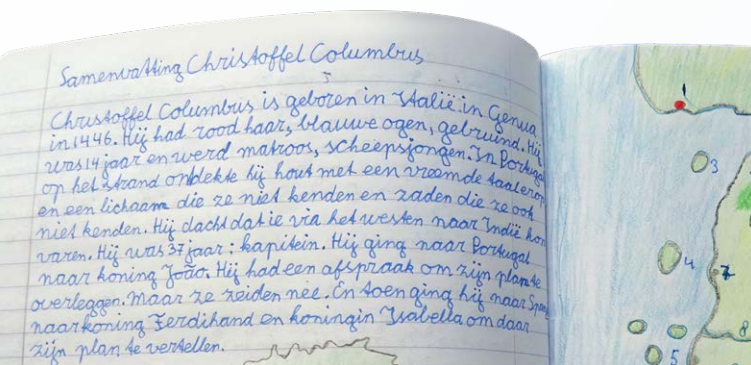 Samenvatting Christoffel Columbus
Christoffel Columbus is geboren in Italië in Genua
in 1446. Hij had rood haar, blauwe ogen, gebruind. Hij
was 14 jaar en werd matroos, scheepsjongen. In Portugal
op het strand ontdekte hij hout met een vreemde taal erop
en een lichaam die ze niet kenden en zaden die ze ook
niet kenden. Hij dacht dat ie via het westen naar Indië kon
varen. Hij was 37 jaar: kapitein. Hij ging naar Portugal
naar koning João. Hij had een afspraak om zijn plan te
overleggen. Maar ze zeiden nee. En toen ging hij naar Spanj
naar koning Ferdinand en koningin Isabella om daar
zijn plan te vertellen.
1
3
4
7
8
5